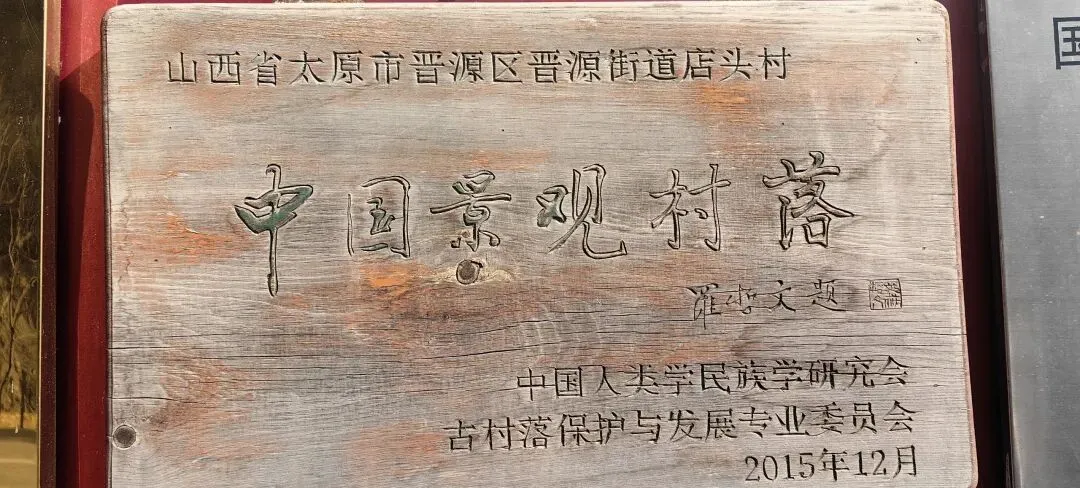 山西省太原市晋源区晋源街道店头村
中国景观村落
罗哲文题
中国人类学民族学研究会
古村落保护与发展专业委员会
2015年12月
国